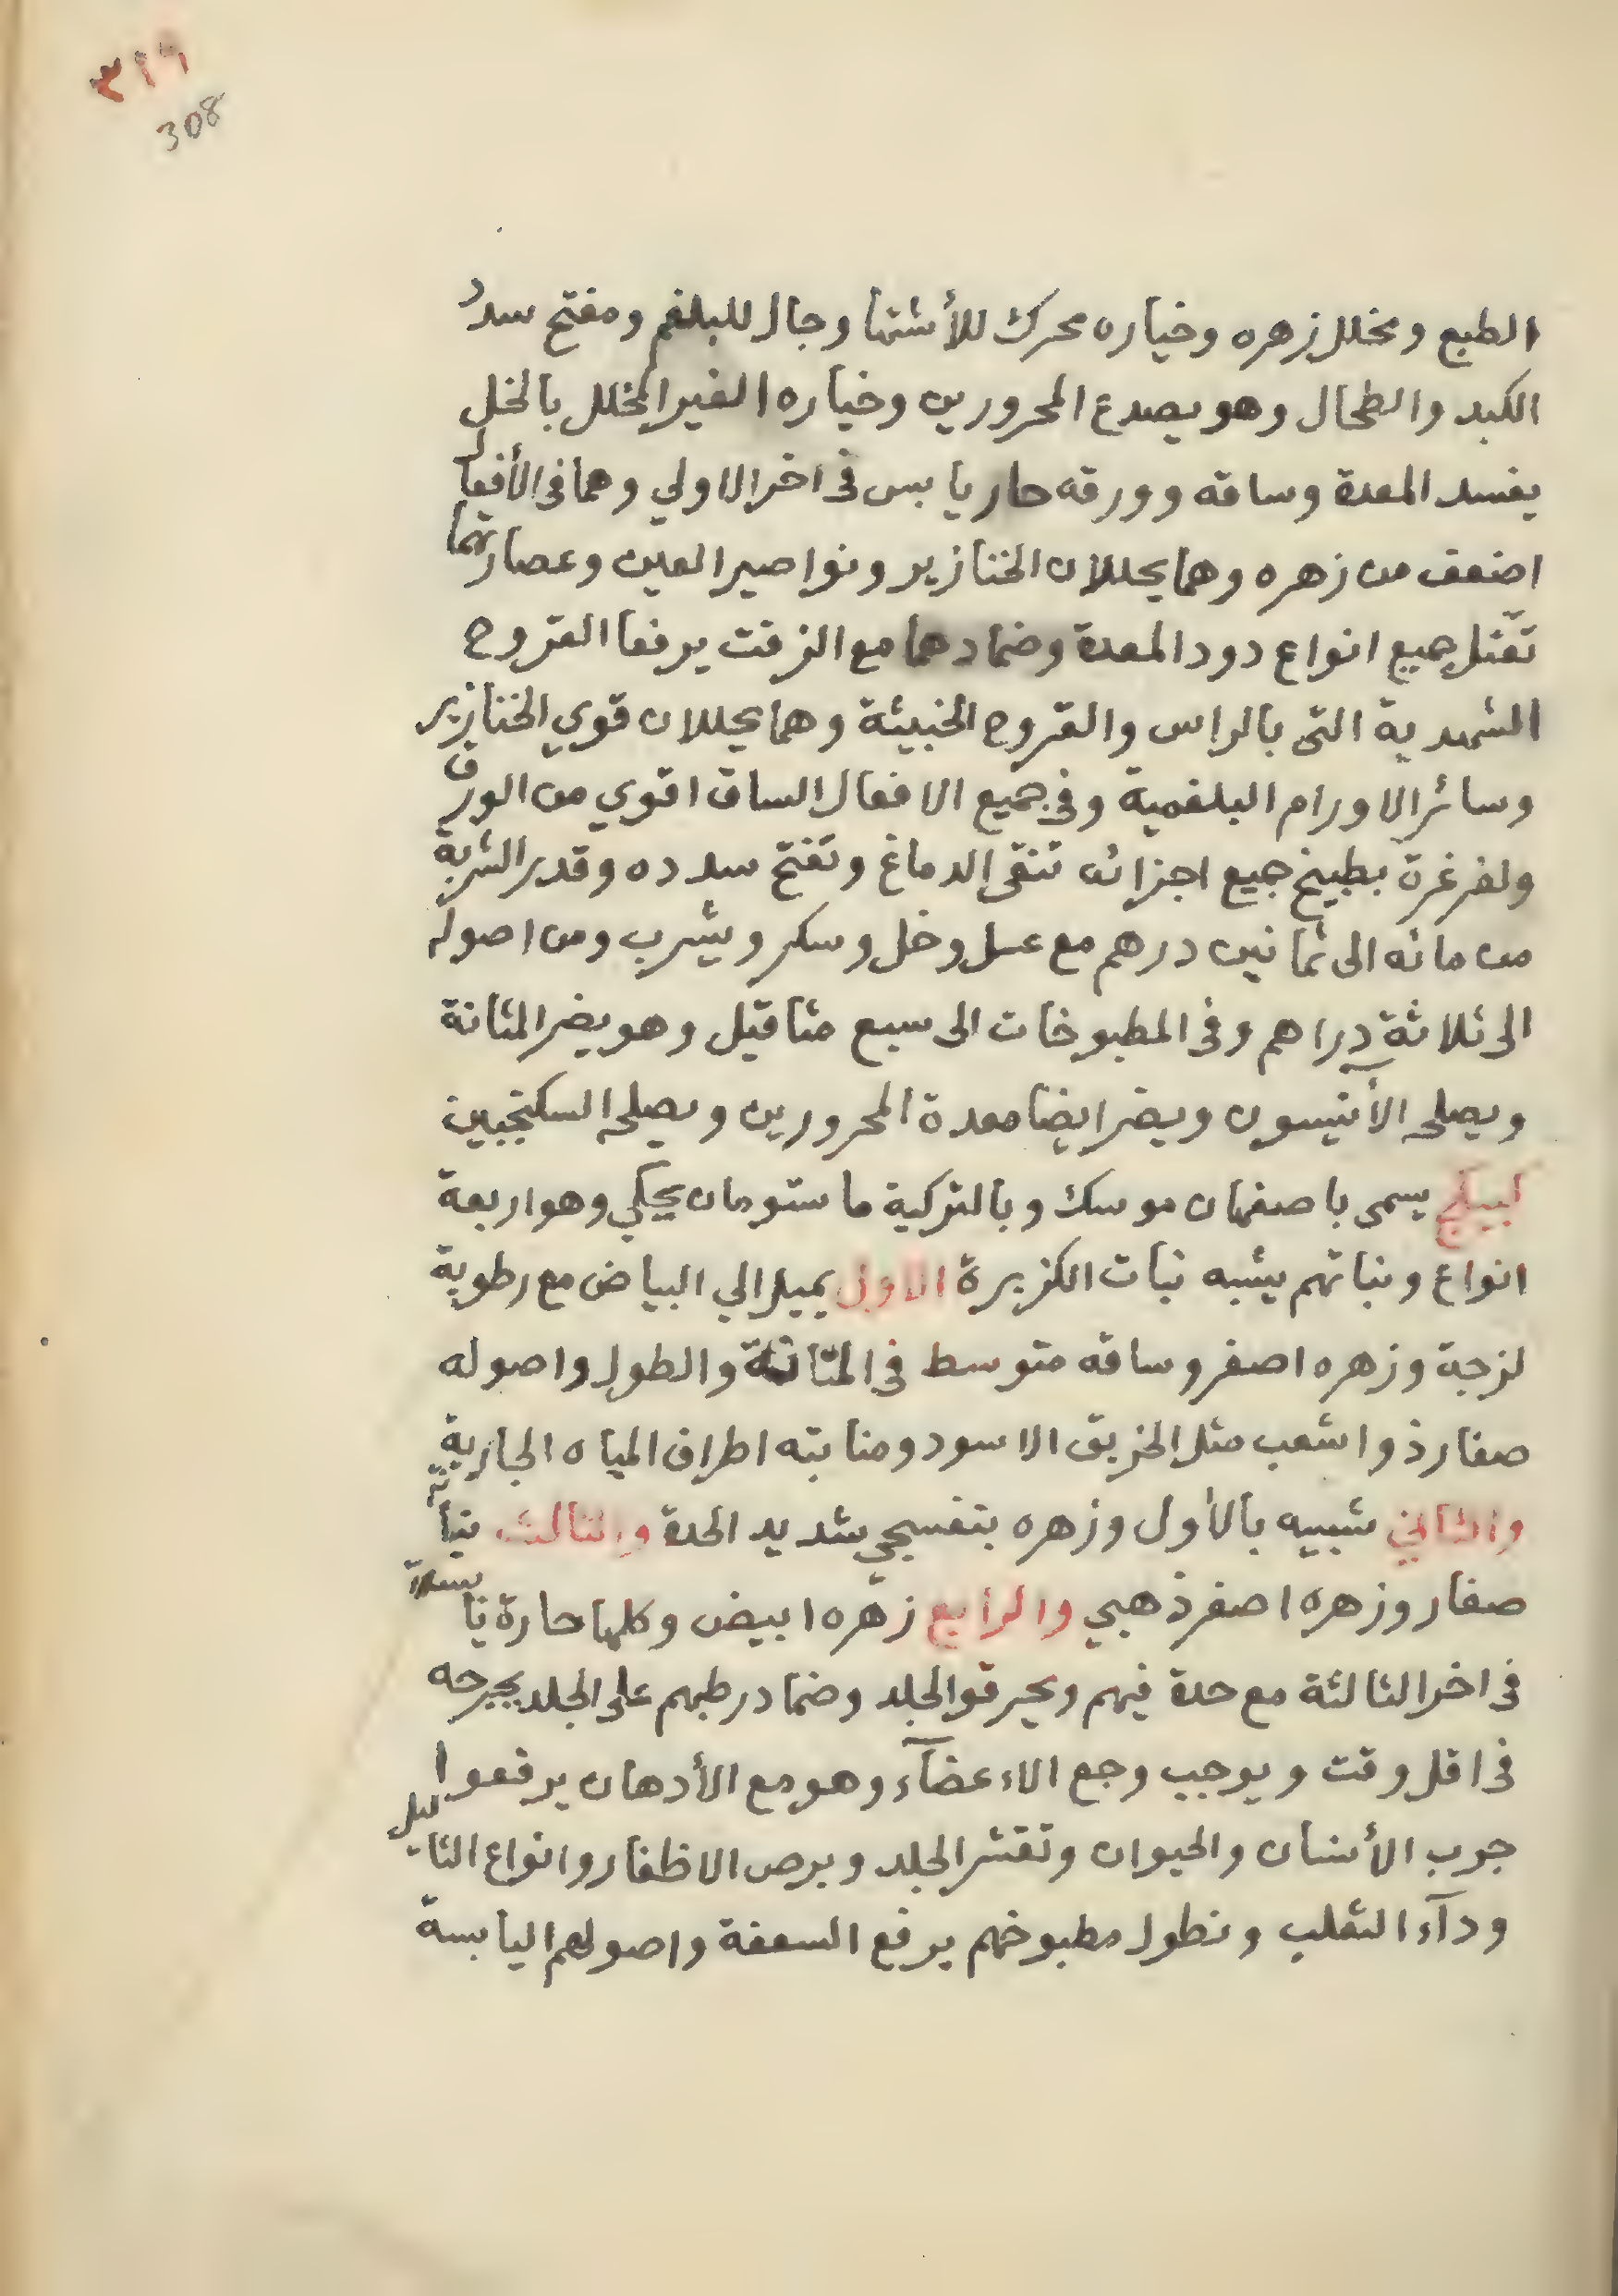 ٣١٩
308
الطبع ومخلل زهره وخياره محرك للأشتها وجال للبلغم ومفتح سدد
الكبد والطحال وهو يصدع المحرورين وخياره الغير المخلل بالخل
يفسد المعدة وساقه وورقه حار يابس فى اخر الاولي وهما فى الأفعال
اضعف من زهره وهما يحللان الخنازير ونواصير العين وعصارتهما
تقتل جميع انواع دود المعدة وضمادهما مع الزفت يرفعا القروح
الشهدية التى بالراس والقروح الخبيثة وهما يحللان قوي الخنازير
وسائر الاورام البلغمية وفى جميع الافعال الساق اقوي من الورق
ولغرغرة بطبيخ جميع اجزائه تنقى الدماغ وتفتح سدده وقدر الشربة
من مائه الى ثمانين درهم مع عسل وخل وسكر ويشرب ومن اصوله
الى ثلاثة دراهم وفى المطبوخات الى سبع مثاقيل وهو يضر المثانة
ويصلحه الأنيسون ويضر ايضا معدة المحرورين ويصلحه السكنجبين
كبيكج يسمى باصفهان موسك وبالتركية ماستومان يحيكي وهو اربعة
انواع ونباتهم يشبه نبات الكزبرة الاول يميل الي البياض مع رطوبة
لزجة وزهره اصفر وساقه متوسط فى المتانة والطول واصوله
صغار ذوا شعب مثل الخربق الاسود ومنابته اطراف المياه الجارية
والثاني شبيه بالأول وزهره بنفسجي شديد الحدة والثالث نباته
صغار وزهره اصفر ذهبي والرابع زهره ابيض وكلها حارة يابسة
فى اخر الثالثة مع حدة فيهم ويحرقو الجلد وضماد رطبهم على الجلد يجرحه
فى اقل وقت ويوجب وجع الاءعضآء وهو مع الأدهان يرفعوا
جرب الأنسان والحيوان وتقشر الجلد وبرص الاظفار وانواع الثاليل
ودآء الثعلب ونطول مطبوخهم يرفع السعفة واصولهم اليابسة